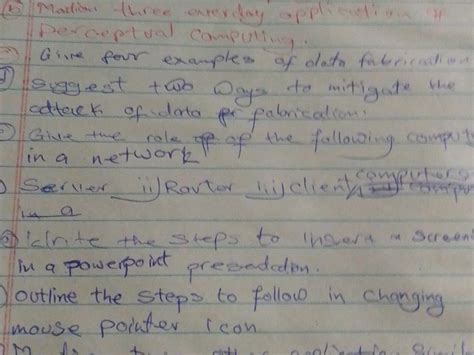 Mention three everday application of
perceptual computing.
Give four examples of data fabrication
suggest two ways to mitigate the
attack of data fabrication.
Give the role of the following comput
in a network
Server ii) Router iii) client computers
in a
Write the steps to insert a screen
in a powerpoint presedation.
outline the steps to follow in changing
mouse pointer icon